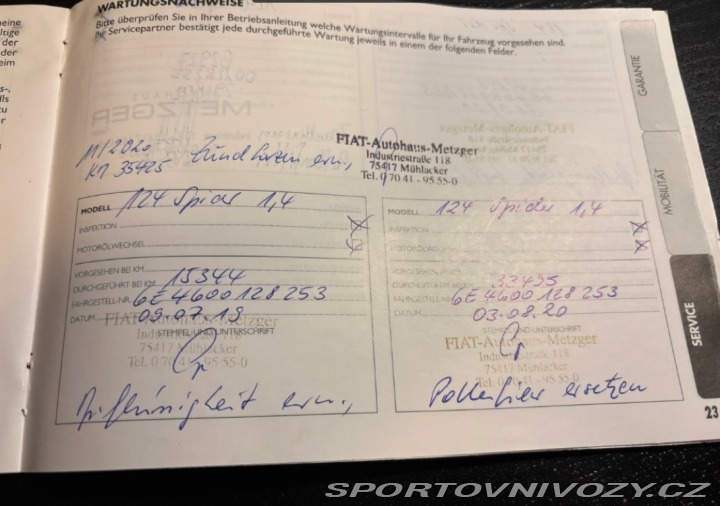 WARTUNGSNACHWEISE
Bitte überprüfen Sie in Ihrer Betriebsanleitung welche Wartungsintervalle für Ihr Fahrzeug vorgesehen sind.
Ihr Servicepartner bestätigt jede durchgeführte Wartung jeweils in einem der folgenden Felder.
GARANTIE
MOBILITÄT
SERVICE
11/2020
KM 35425 Zündkerzen ern.,
FIAT-Autohaus-Metzger
Industriestraße 118
75417 Mühlacker
Tel. 0 70 41 - 95 55-0
MODELL 124 Spider 1,4
INSPEKTION X
MOTORÖLWECHSEL
VORGESEHEN BEI KM
DURCHGEFÜHRT BEI KM 15344
FAHRGESTELL-NR. 6E4600128253
DATUM 09.07.19
STEMPEL UND UNTERSCHRIFT
FIAT-Autohaus-Metzger
Industriestraße 118
75417 Mühlacker
Tel. 0 70 41 - 95 55-0
ern.,
MODELL 124 Spider 1,4
INSPEKTION X
MOTORÖLWECHSEL X
VORGESEHEN BEI KM
DURCHGEFÜHRT BEI KM 33495
FAHRGESTELL-NR. 6E4600128253
DATUM 03.08.20
STEMPEL UND UNTERSCHRIFT
FIAT-Autohaus-Metzger
Industriestraße 118
75417 Mühlacker
Tel. 0 70 41 - 95 55-0
ersetzen
23
SPORTOVNIVOZY.CZ